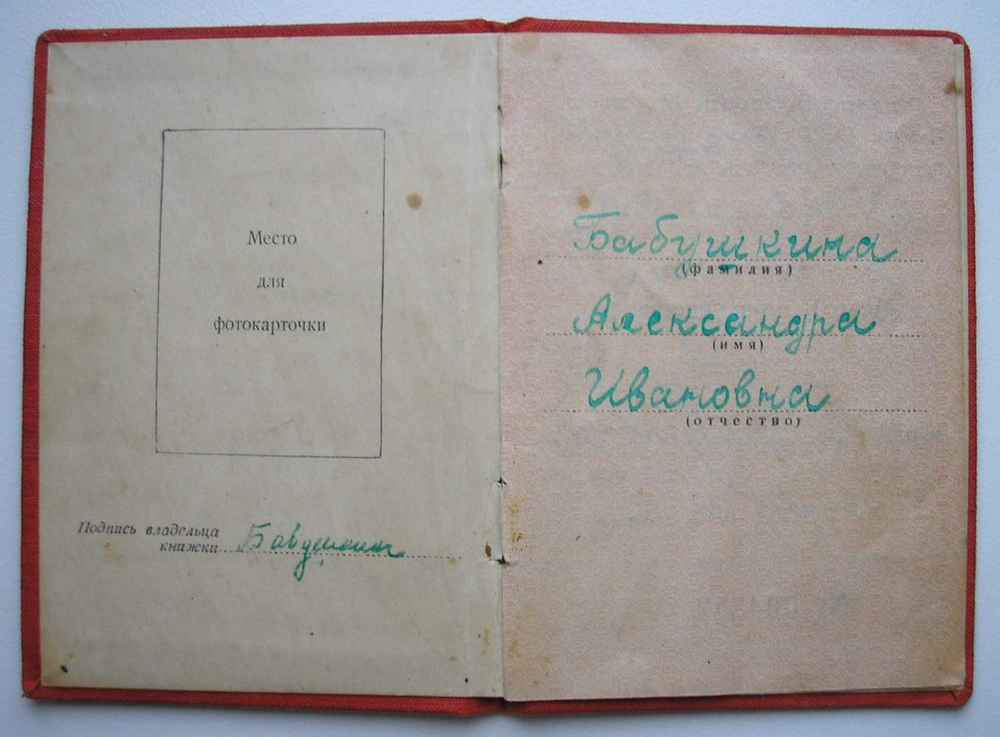 Место
для
фотокарточки
Подпись владельца
книжки
Бабушкина
(фамилия)
Александра
(имя)
Ивановна
(отчество)